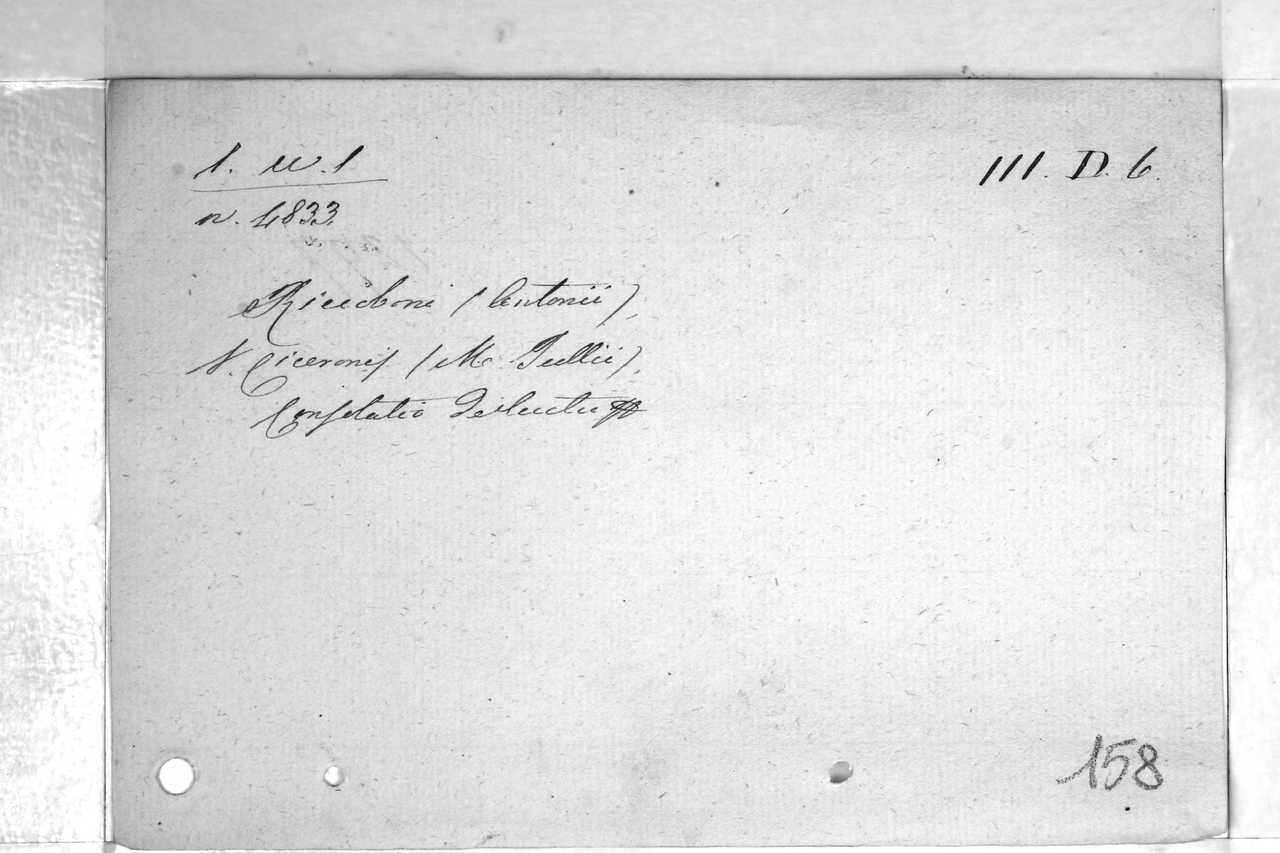 1. w. 1
III. D. 6.
n. 4833.
Riccoboni (Antonii),
V. Ciceronis (M. Tullii),
Consolatio
158